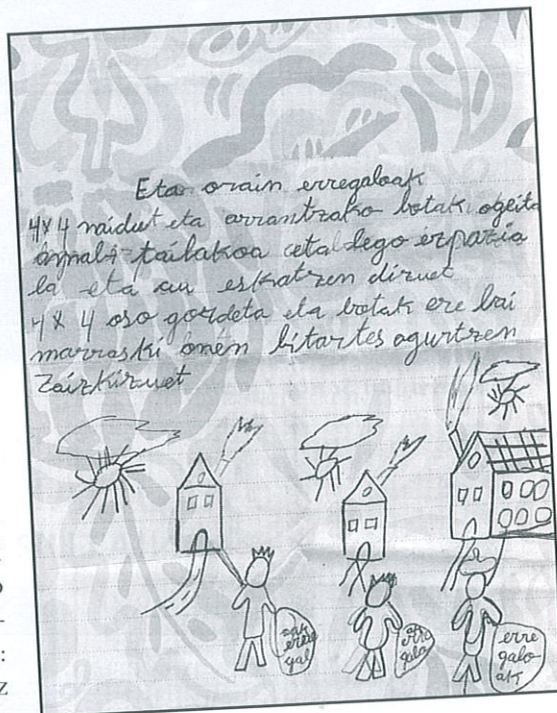 Eta orain erregaloak
4x4 naidut eta arrantzako botak ogeita
amabi tailakoa eta lego
la eta au eskatzen dizuet
4x4 oso gordeta eta botak ere bai
marraski onen bitartes agurtzen
zaizkizuet
erre
gal
erre
galo
erre
galo
ak
:
z